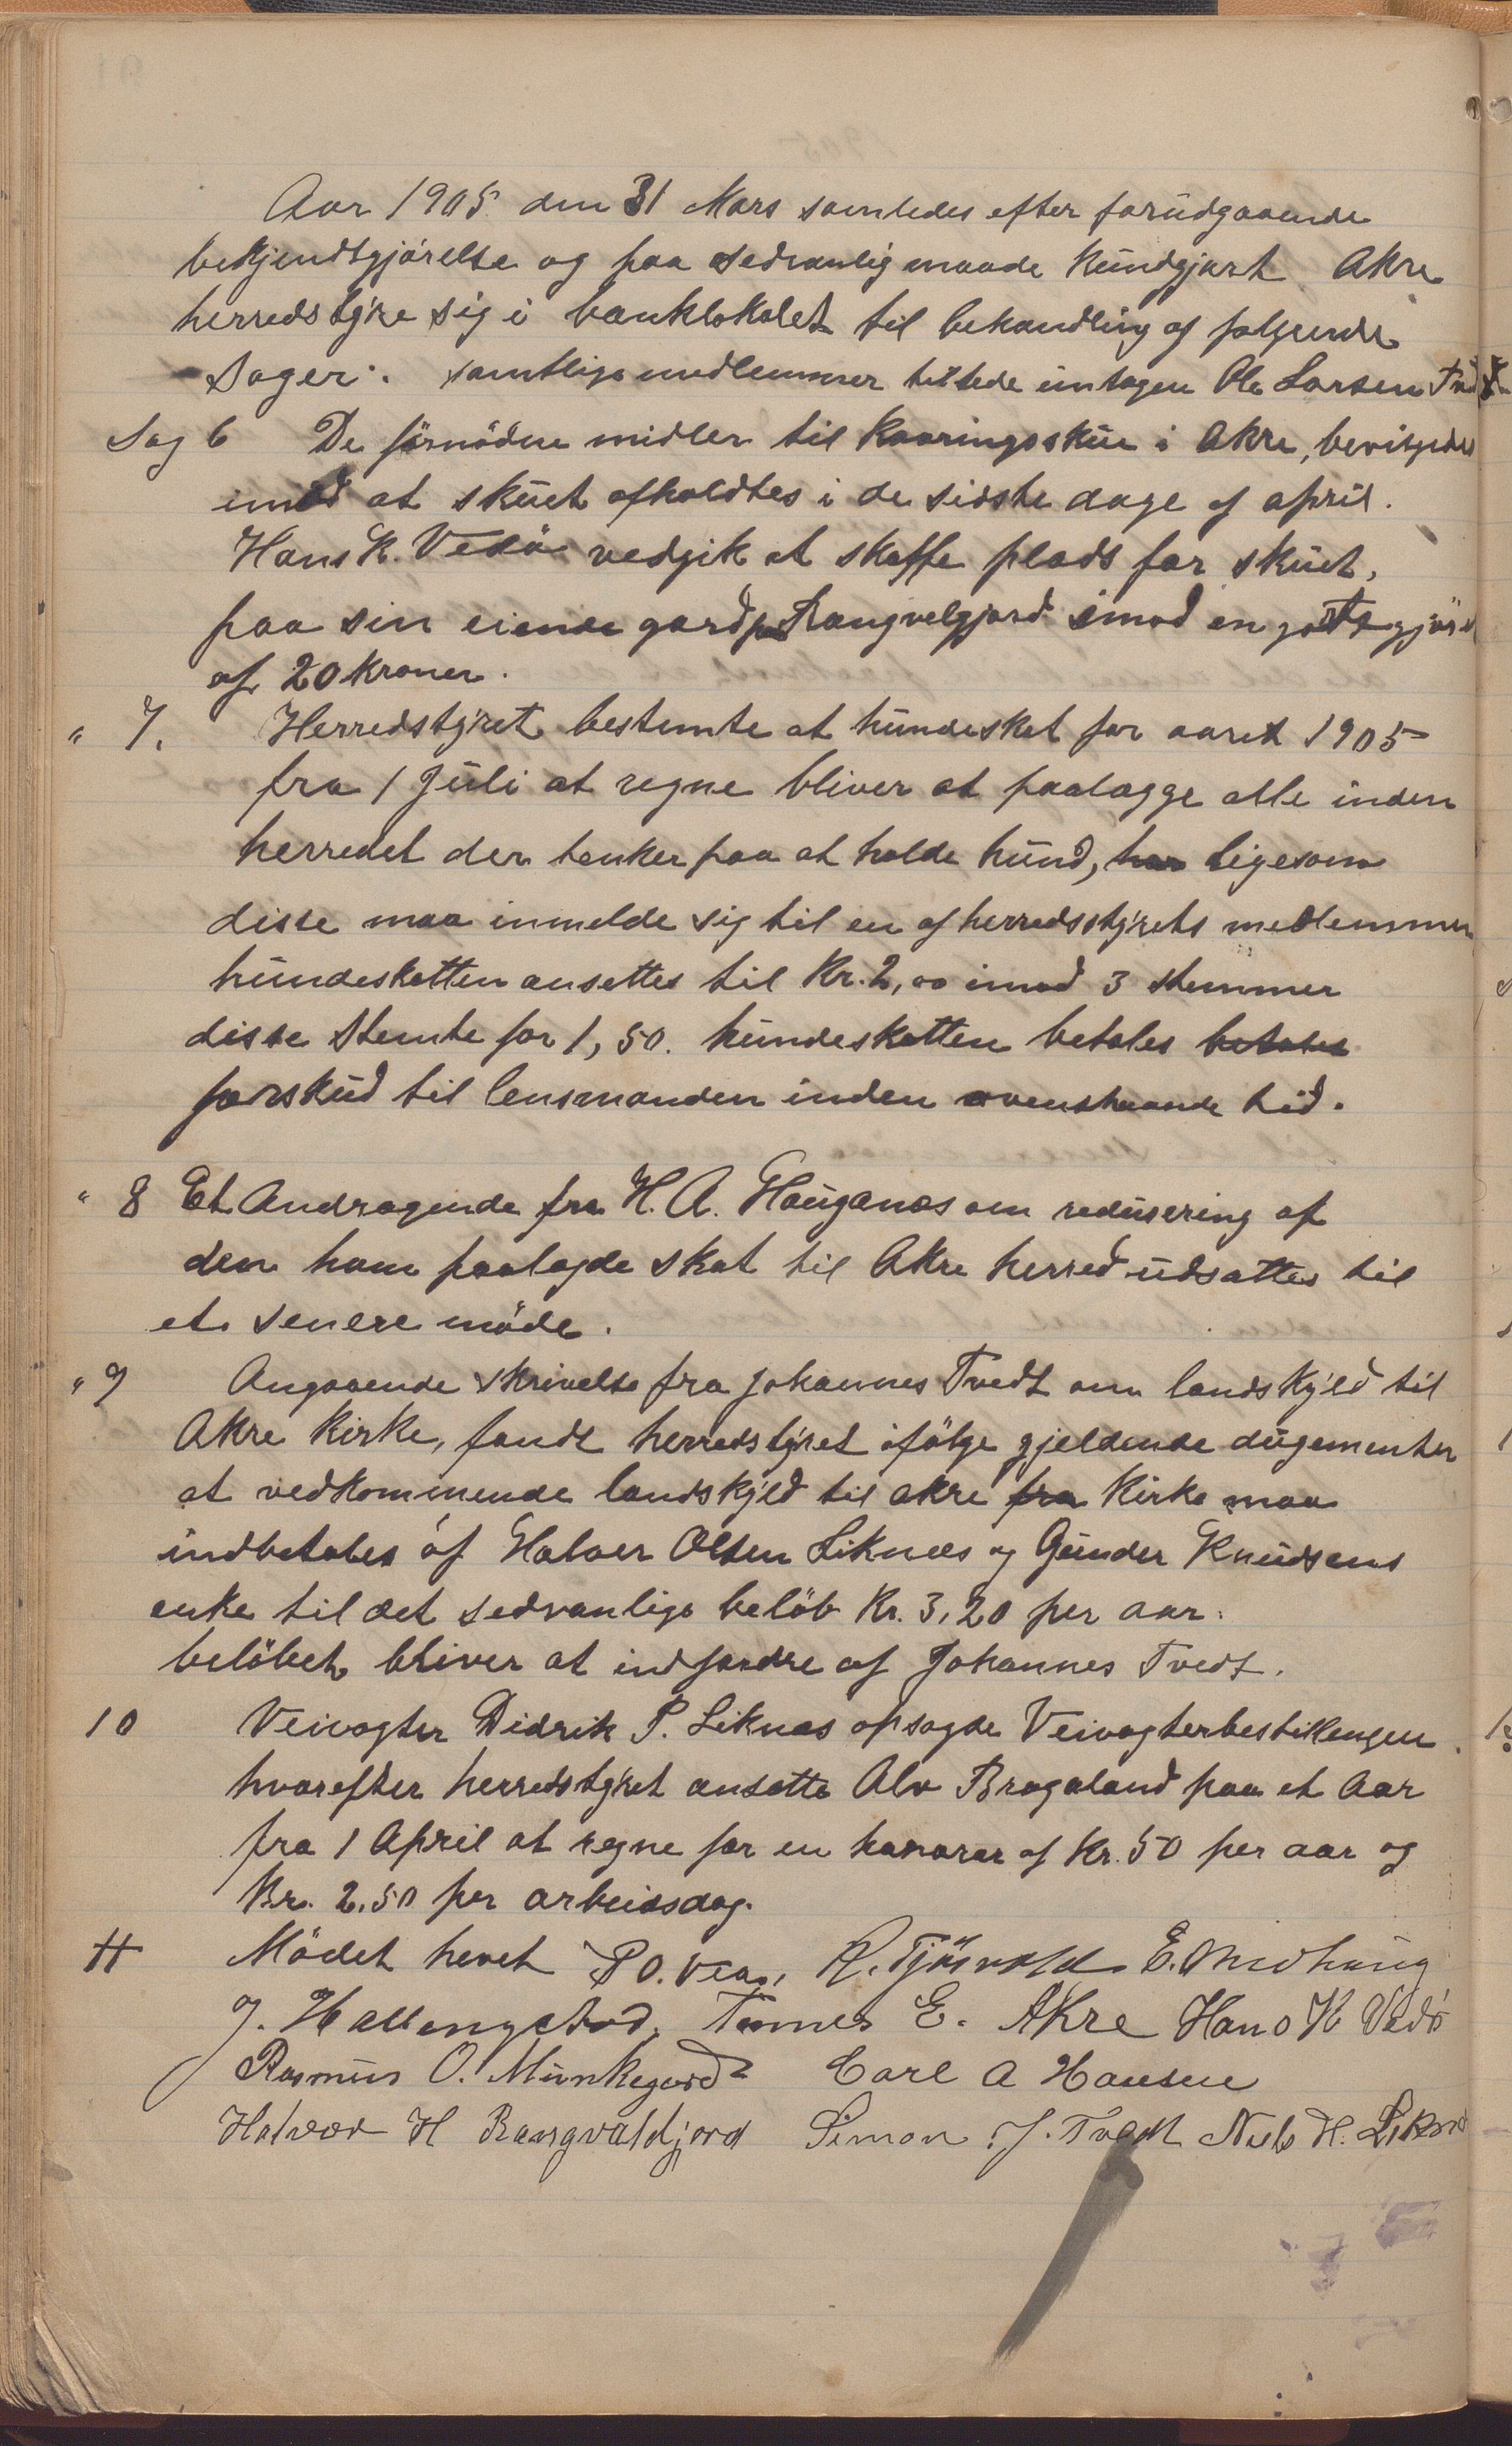 Aar 1905 den 31 Mars samledes efter forudgaaende
bekjendtgjørelse og paa sedvanlig maade kundgjort Akre
herredstyre sig i banklokalet til behandling af følgende
Sager. samtlige medlemmer tilstede imtagen Ole Larsen
Sag 6 De förnödne midler til kaaringsskue i Akre, bevilgedes
imod at skuet afholdtes i de sidste dage af april.
Hans K. Vedö vedgik at skaffe plads for skuet,
paa sin eiende gard paa Rangvelgjord imod en godtgjör
af 20 kroner.
" 7. Herredstyret bestemte at hundeskat for aaret 1905
fra 1 Juli at regne bliver at paalægge alle inden
herredet der tenker paa at holde hund, har ligesom
disse maa inmelde sig til en af herredsstyrets medlemmer
hundeskatten ansettes til Kr. 2,00 imod 3 stemmer
disse stemte for 1,50. hundeskatten betales betales
forskud til lensmanden inden ovenstaaende tid.
" 8 Et Andragende fra H. A. Hauganæs om redusering af
den ham paalagde skat til Akre herred udsattes til
et senere möde.
" 9 Angaaende skrivelse fra Johannes Tvedt om landskyld til
Akre Kirke, fandt herredstyret ifölge gjeldende dugementer
at vedkommende landskyld til akre fra Kirke maa
indbetales af Halvor Olsen Liknæs og Gunder Knudsens
enke til det sedvanlige belöb Kr. 3,20 per aar.
belöbet bliver at indfordre af Johannes Tvedt.
10 Veivogter Didrik P. Liknæs opsagde Veivogterbestillengen
hvorefter herredstyret ansatte Alv Bragaland paa et Aar
fra 1 April at regne for en honorar af Kr. 50 per aar og
Kr. 2.50 per arbeidsdag.
Mödet hevet P O. Vea, R. Tjösvold E. Midhaug
J. Hallengstad, Tønnes E. Akre Hans K Vedö
Rasmus O. Munkegord Carl A Hansen
Halvor H Rangvaldjord Simon J. Tvedt Niels H. Likn